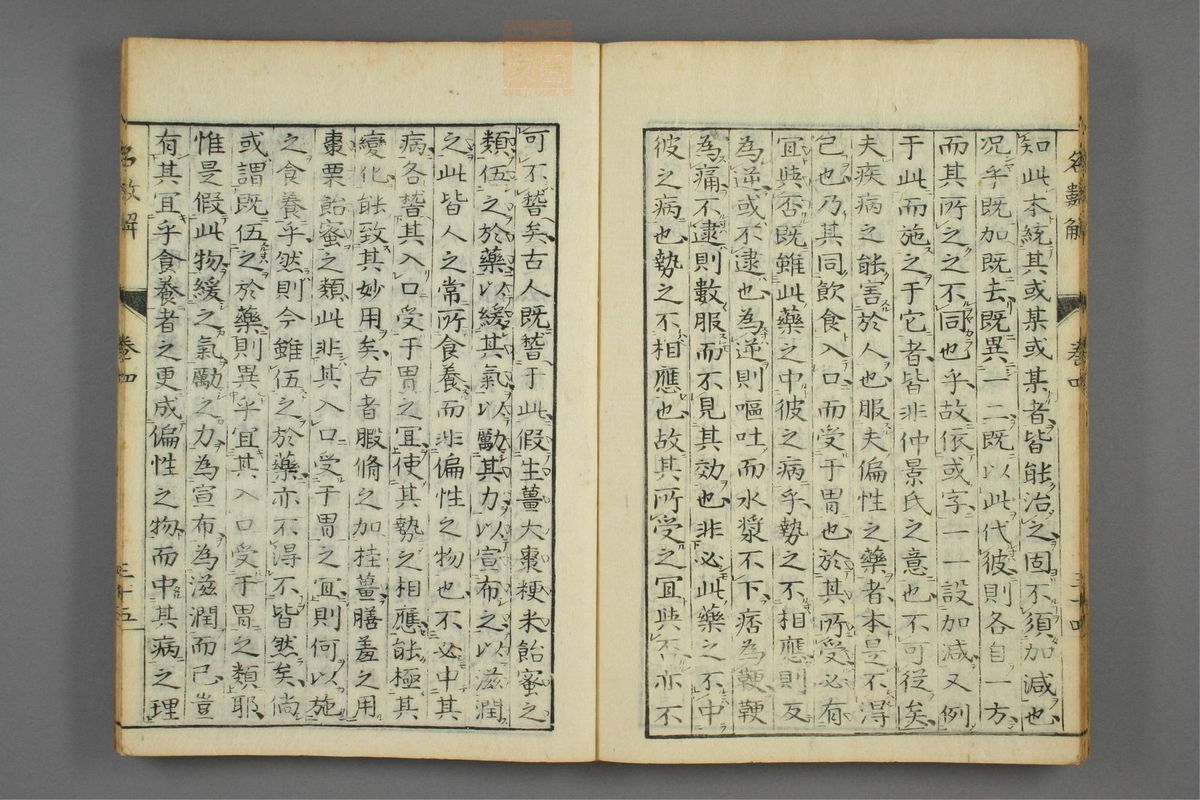 知此本統其或某或某者皆能治之固不須加減也
况乎既加既去既異一二既以此代彼則各自一方
而其所之之不同也乎故依或字一一設加減又例
于此而施之于它者皆非仲景氏之意也不可從矣
夫疾病之能害於人也服夫偏性之藥者本是不得
已也乃其同飲食入口而受于胃也於其所受必有
宜與否既雖此藥之中彼之病乎勢之不相應則反
為逆或不逮也為逆則嘔吐而水漿不下痞為鞕
為痛不逮則數服而不見其効也非必此藥之不中
彼之病也勢之不相應也故其所受之宜與否亦不
名數解
卷四
三十四
可不誓矣古人既誓于此假生薑大棗粳米飴蜜之
類伍之於藥以緩其氣以勵其力以宣布之以滋潤
之此皆人之常所食養而非偏性之物也不必中其
病各誓其入口受于胃之宜使其勢之相應能極其
變化能致其妙用矣古者腵脩之加桂薑膳羞之用
棗栗飴蜜之類此非其入口受于胃之宜則何以施
之食養乎然則今雖伍之於藥亦不得不皆然矣倘
或謂既伍之於藥則異乎宜其入口受于胃之類耶
惟是假此物緩之氣勵之力為宣布為滋潤而已豈
有其宜乎食養者之更成偏性之物而中其病之理
名數解
卷四
三十五